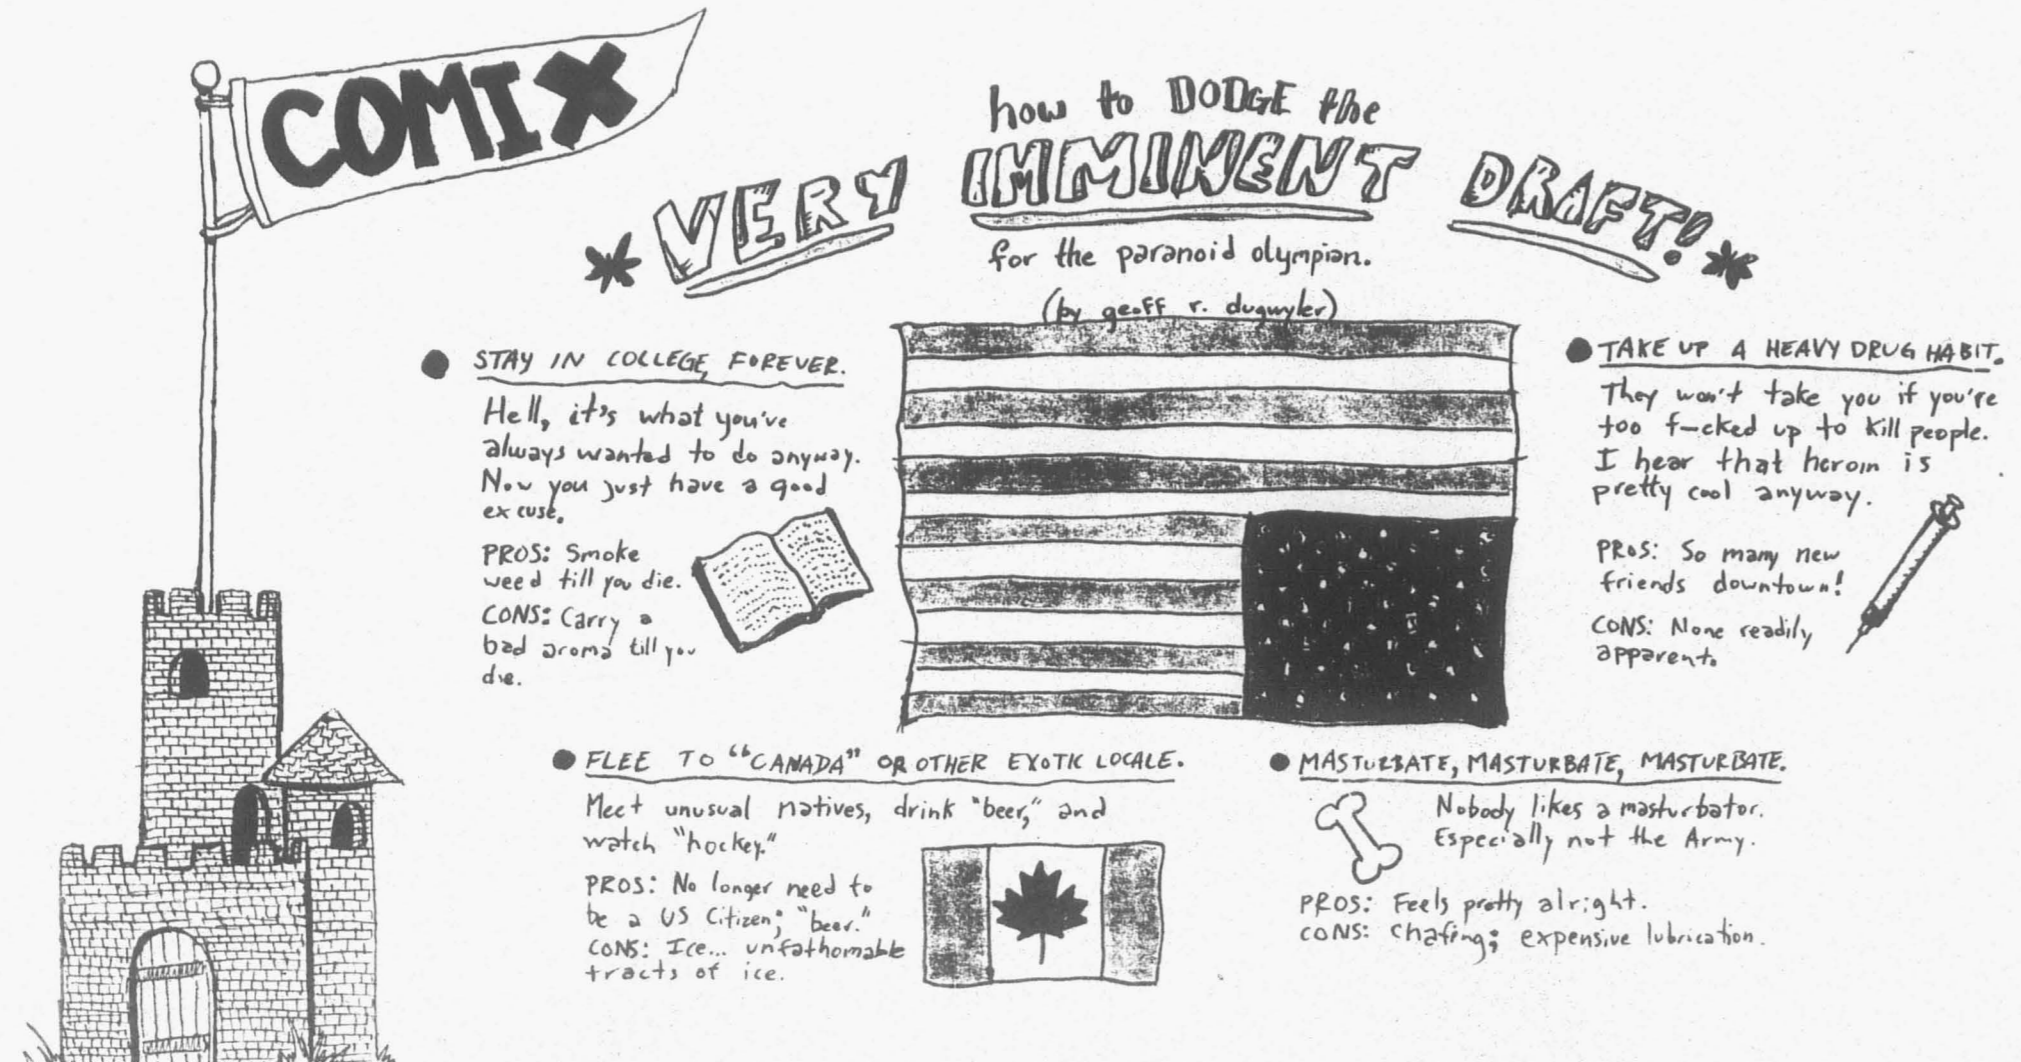 COMIX
how to DODGE the
*VERY IMMINENT DRAFT!*
for the paranoid olympian.
(by geoff r. dugwyler)
STAY IN COLLEGE, FOREVER.
Hell, it's what you've
always wanted to do anyway.
Now you just have a good
excuse.
PROS: Smoke
weed till you die.
CONS: Carry a
bad aroma till you
die.
TAKE UP A HEAVY DRUG HABIT.
They won't take you if you're
too f–cked up to kill people.
I hear that heroin is
pretty cool anyway.
PROS: So many new
friends downtown!
CONS: None readily
apparent.
FLEE TO "CANADA" OR OTHER EXOTIC LOCALE.
Meet unusual natives, drink "beer," and
watch "hockey."
PROS: No longer need to
be a US Citizen; "beer."
CONS: Ice... unfathomable
tracts of ice.
MASTURBATE, MASTURBATE, MASTURBATE.
Nobody likes a masturbator.
Especially not the Army.
PROS: Feels pretty alright.
CONS: Chafing; expensive lubrication.